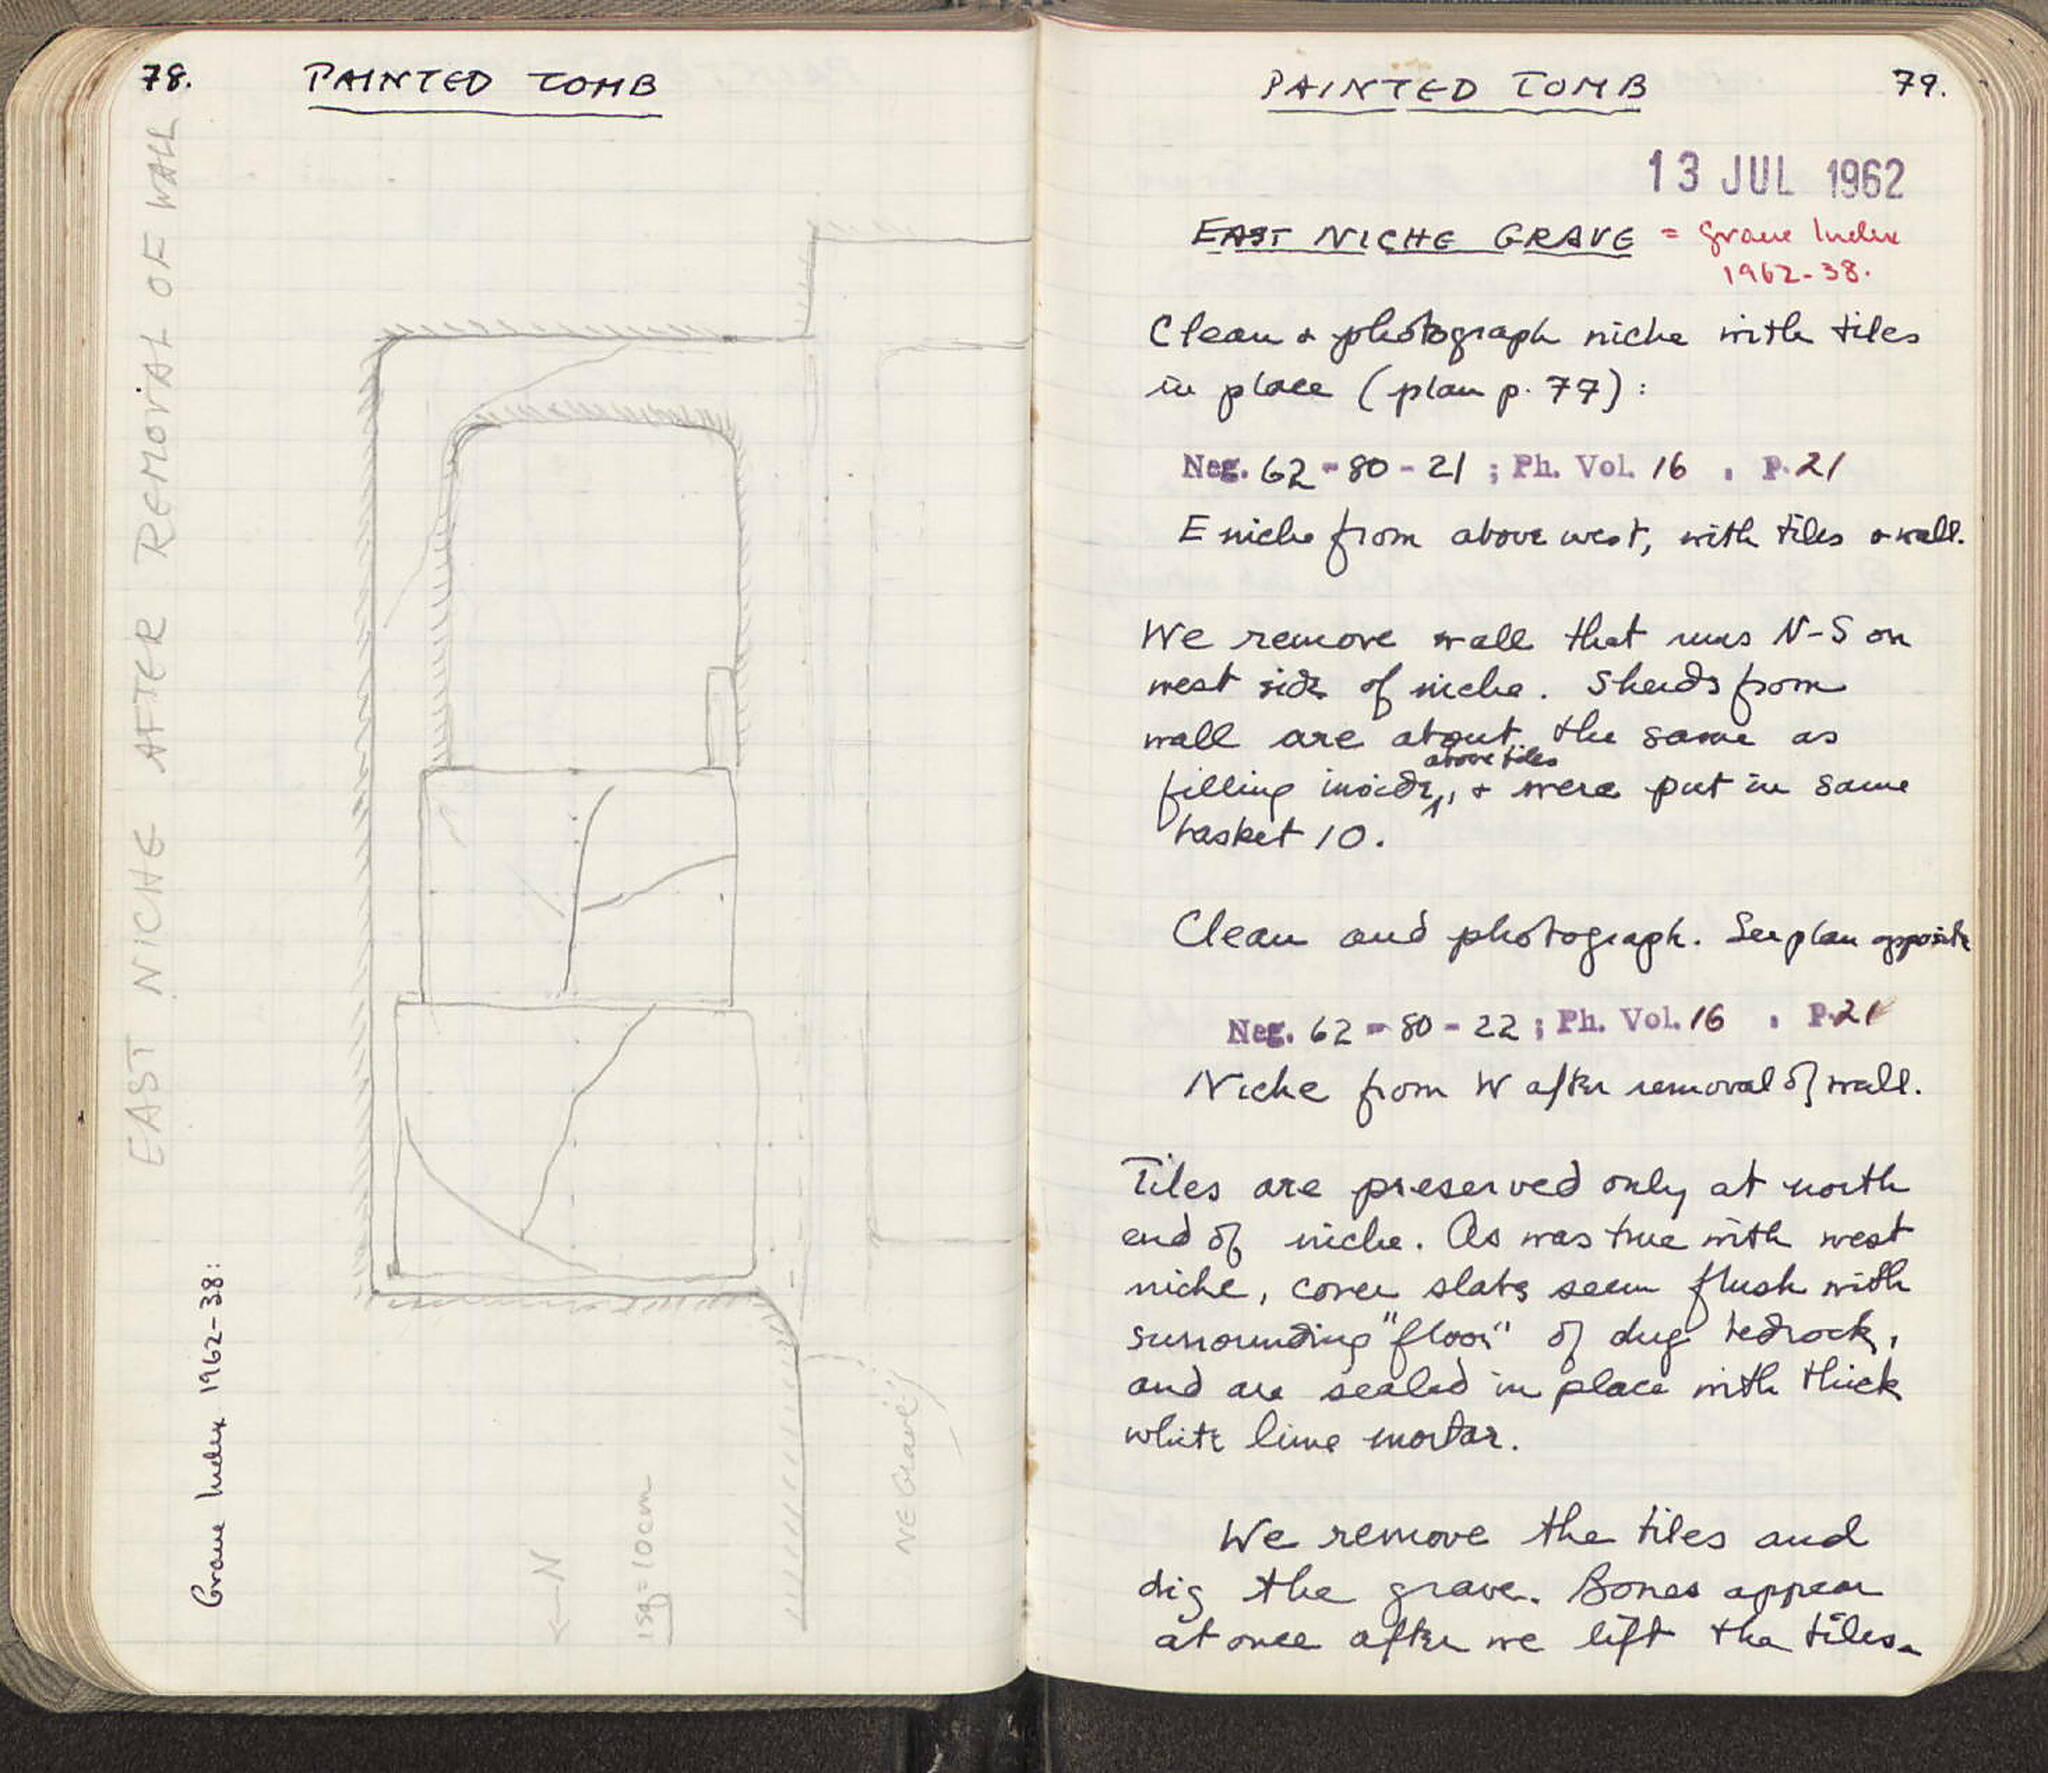 78.
PAINTED TOMB
EAST NICHE AFTER REMOVAL OF WALL
Grave Index 1962-38:
← N
1 sq = 10 cm
NE Grave
PAINTED TOMB
79.
13 JUL 1962
EAST NICHE GRAVE = Grave Index
1962-38.
Clean & photograph niche with tiles
in place (plan p. 77):
Neg. 62-80-21; Ph. Vol. 16, P. 21
E niche from above west, with tiles & wall.
We remove wall that runs N-S on
west side of niche. Sherds from
wall are about the same as
above tiles
filling inside, & were put in same
basket 10.
Clean and photograph. See plan opposite
Neg. 62-80-22; Ph. Vol. 16, P. 21
Niche from W after removal of wall.
Tiles are preserved only at north
end of niche. As was true with west
niche, cover slabs seem flush with
surrounding "floor" of dug bedrock,
and are sealed in place with thick
white lime mortar.
We remove the tiles and
dig the grave. Bones appear
at once after we lift the tiles.